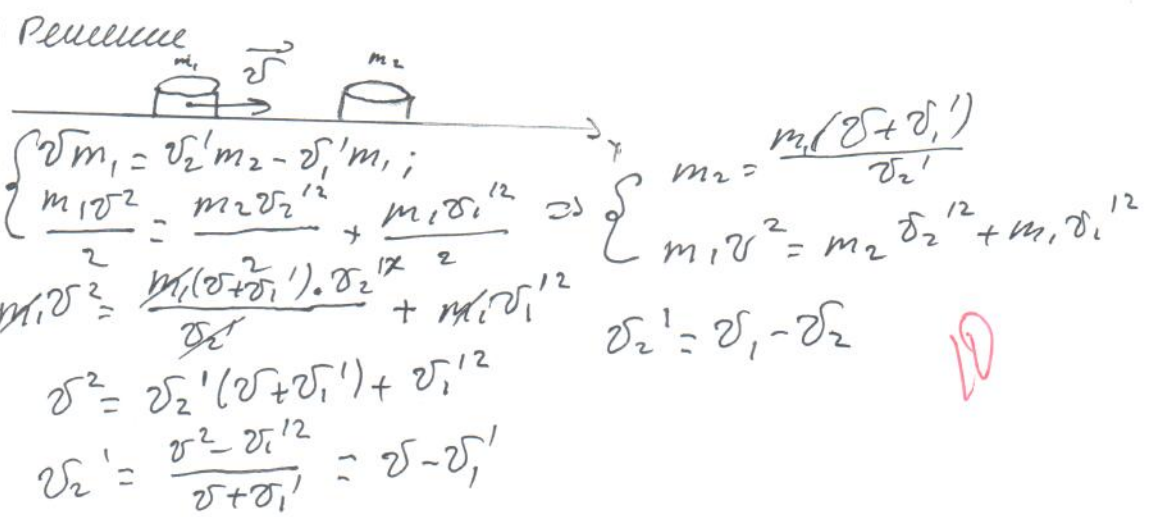 Решение
m₁ v⃗ m₂
x
{ vm₁ = v₂'m₂ - v₁'m₁;
m₁v²/2 = m₂v₂'²/2 + m₁v₁'²/2 ⇒ { m₂ = m₁(v+v₁')/v₂'
m₁v² = m₂v₂'² + m₁v₁'²
m₁v² = m₁(v+v₁')·v₂'²/v₂' + m₁v₁'²
v² = v₂'(v+v₁') + v₁'²
v₂' = (v² - v₁'²)/(v+v₁') = v - v₁'
v₂' = v₁ - v₂
10